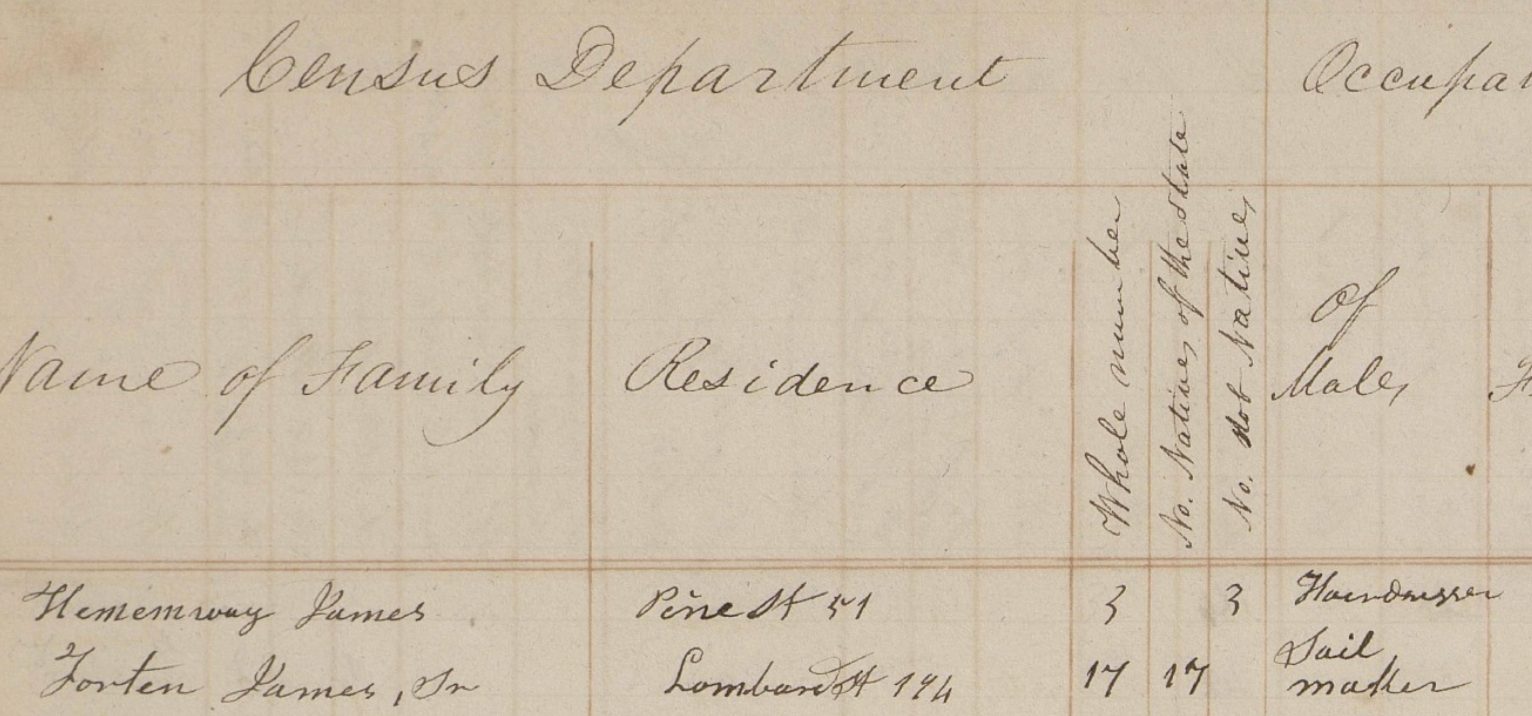 Census Department Occupa
Name of Family Residence Whole number No. Natives of the State No. not Natives Of Males
Hememway James Pine St 51 3 3 Hairdresser
Forten James, Sr Lombard St 194 17 17 Sail maker